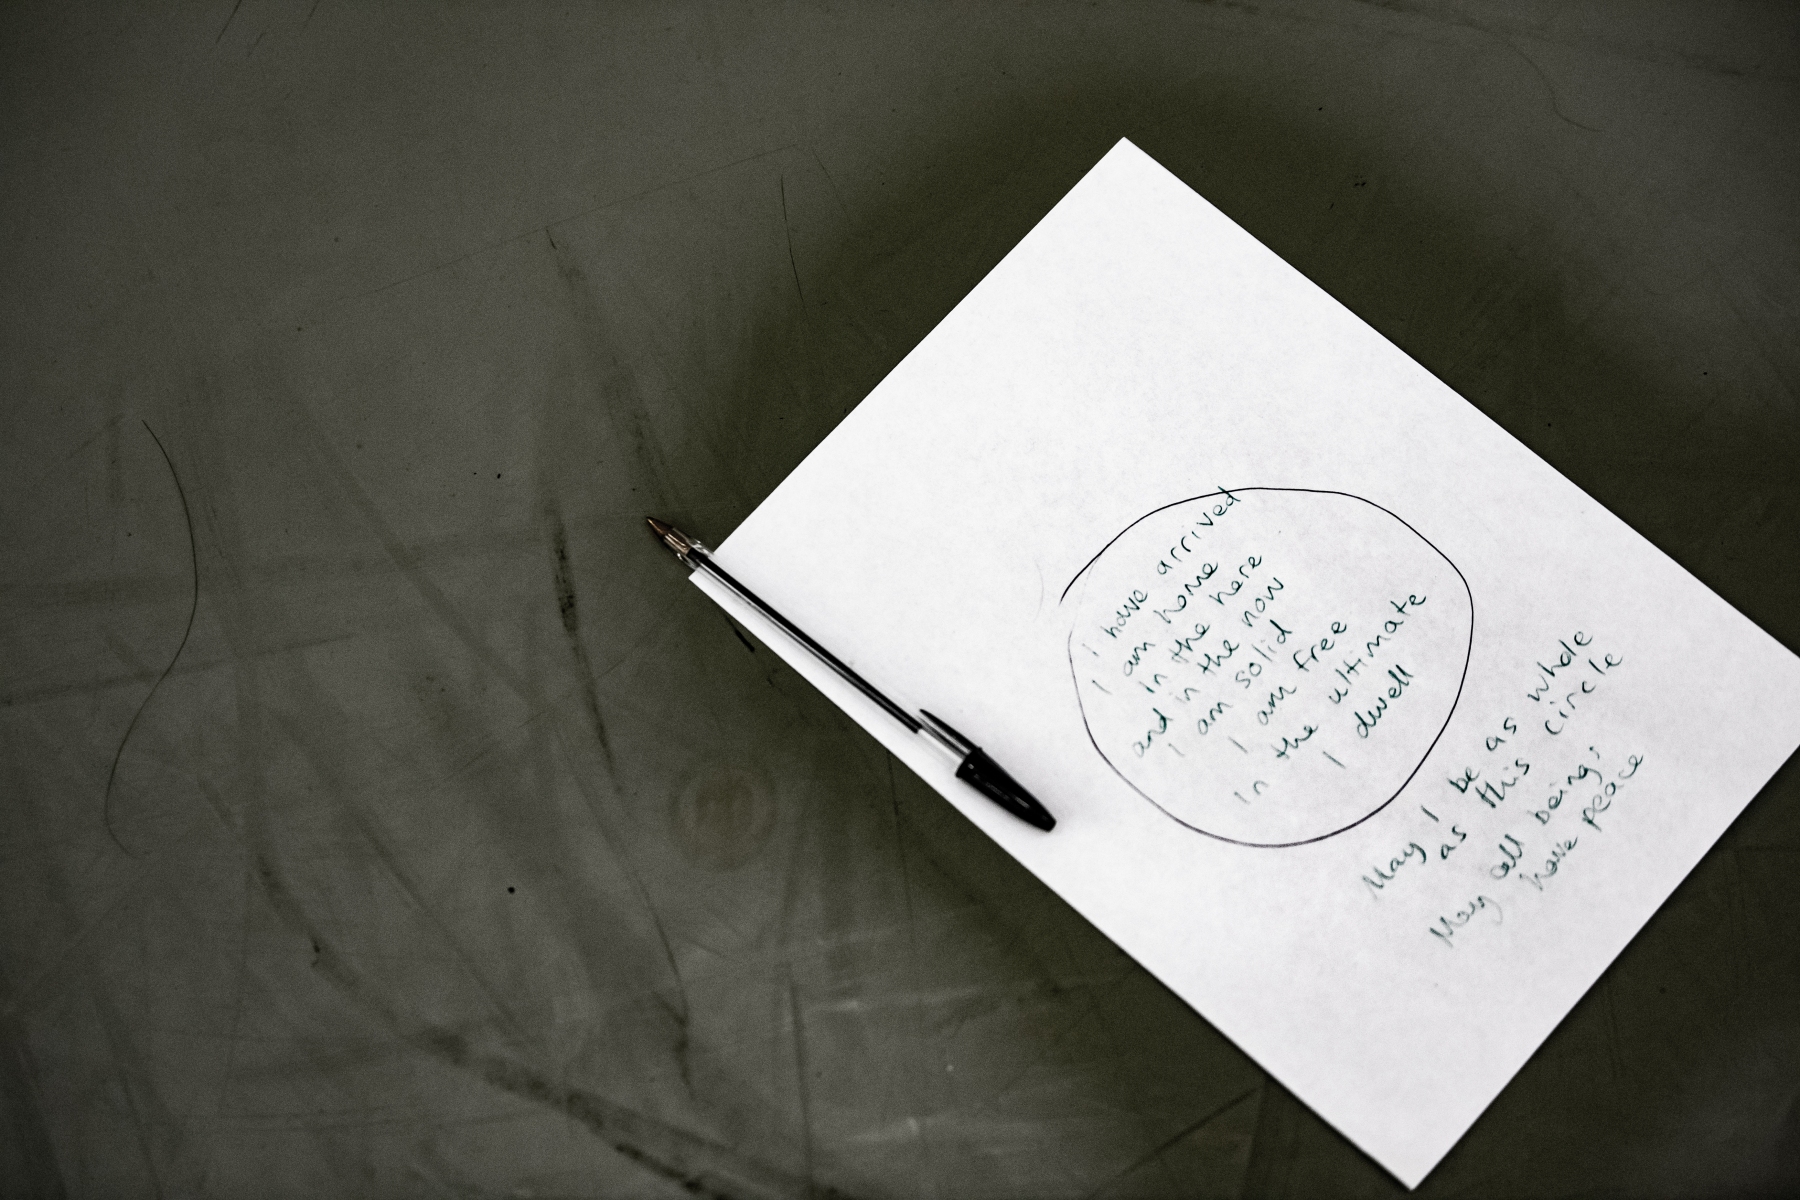 I have arrived
I am home
in the here
and in the now
I am solid
I am free
in the ultimate
I dwell
May I be as whole
as this circle
May all beings
have peace